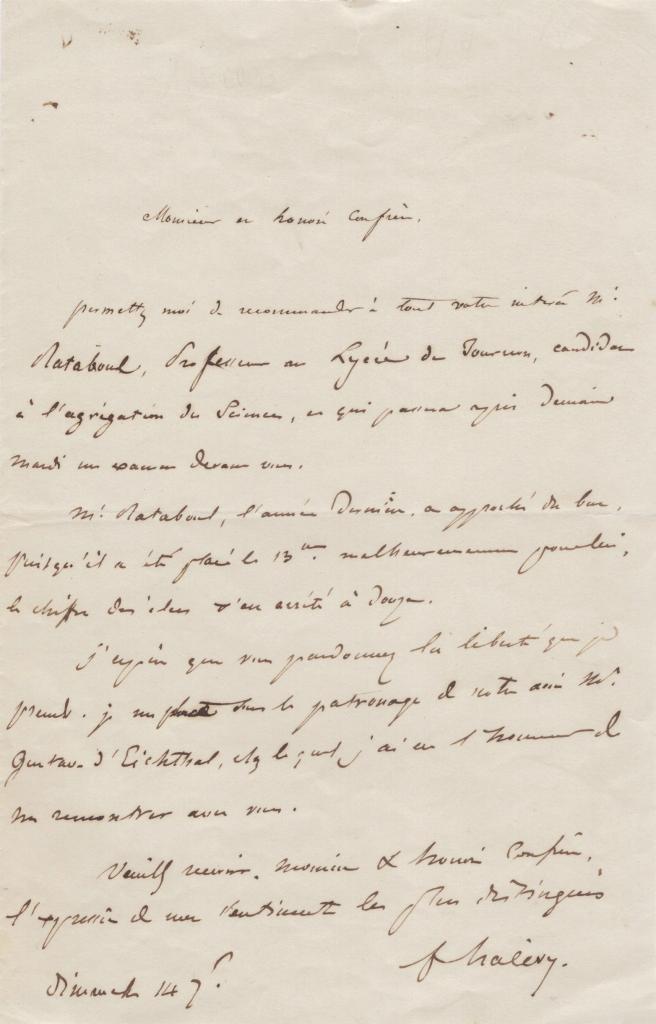 Monsieur et honoré Confrère,
permettez moi de recommander à tout votre intérêt Mr.
Rataboul, Professeur au Lycée de Tournon, candidat
à l'agrégation des Sciences, et qui passera après demain
mardi un examen devant vous.
Mr. Rataboul, l'année dernière, a approché du but,
puisqu'il a été placé le 13me. malheureusement pour lui,
le chiffre des élus s'en arrêté à douze.
J'espère que vous pardonnerez la liberté que je
prends. je me place sous le patronage de notre ami Mr.
Gustave d'Eichthal, chez lequel j'ai eu l'honneur de
me rencontrer avec vous.
Veuillez recevoir, Monsieur & honoré Confrère,
l'expression de mes sentiments les plus distingués
f halévy.
dimanche 14 7